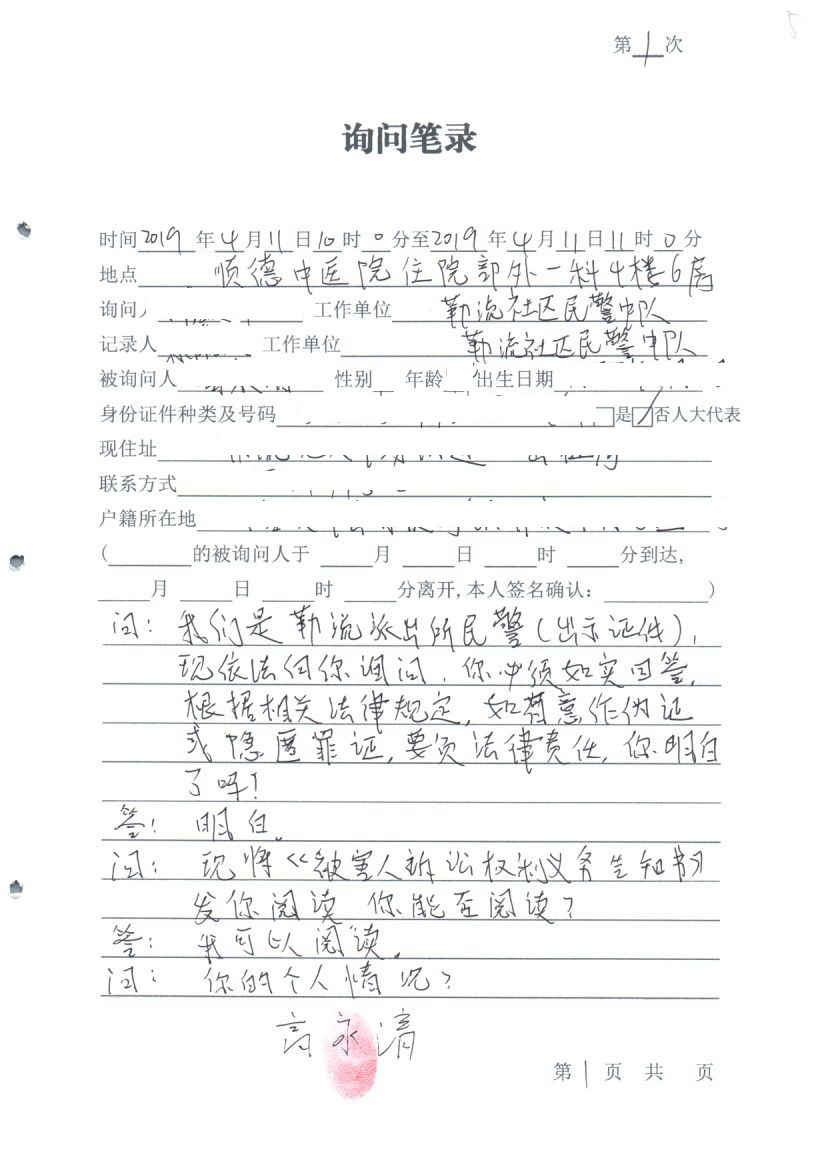 第1次
询问笔录
时间2019年4月11日10时0分至2019年4月11日11时0分
地点 顺德中医院住院部外一科4楼6房
询问人 工作单位 勒流社区民警中队
记录人 工作单位 勒流社区民警中队
被询问人 性别 年龄 出生日期
身份证件种类及号码 □是☑否人大代表
现住址
联系方式
户籍所在地
( 的被询问人于 月 日 时 分到达,
月 日 时 分离开,本人签名确认: )
问: 我们是勒流派出所民警(出示证件),
现依法向你询问,你必须如实回答,
根据相关法律规定,如有意作伪证
或隐匿罪证,要负法律责任,你明白
了吗?
答: 明白。
问: 现将《被害人诉讼权利义务告知书》
发你阅读 你能否阅读?
答: 我可以阅读。
问: 你的个人情况?
高永清
第1页 共 页